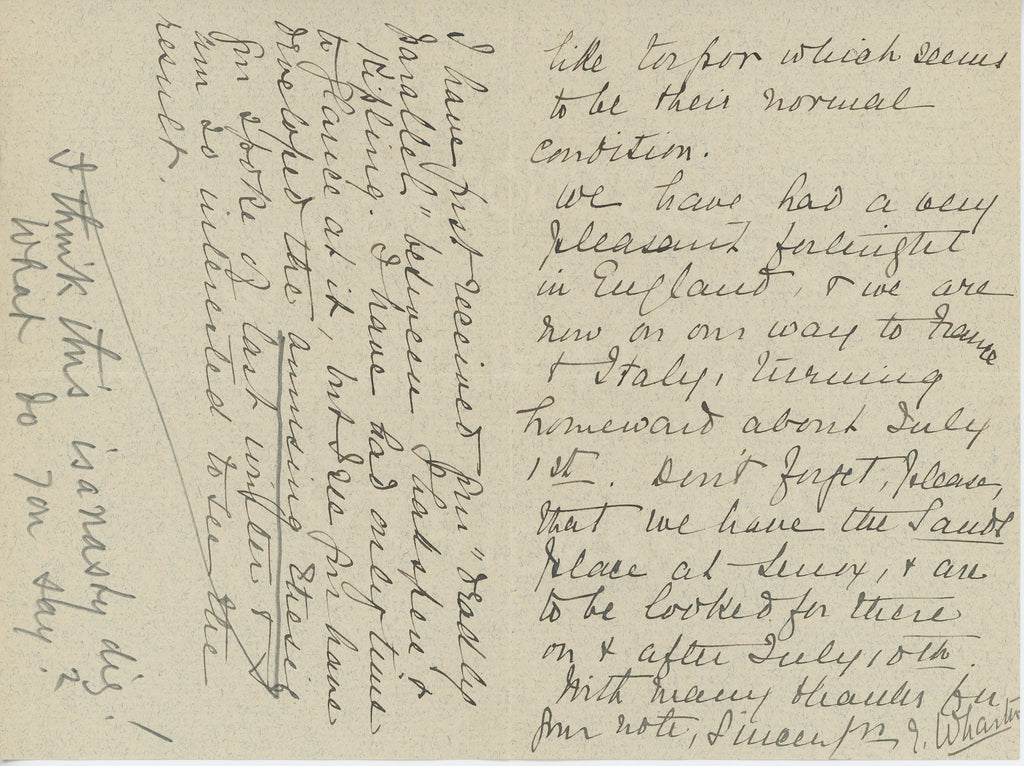 like torpor which seems
to be their normal
condition.
We have had a very
pleasant fortnight
in England, & we are
now on our way to France
& Italy, turning
homeward about July
1st. Don't forget, please,
that we have the Sands
place at Lenox, & are
to be looked for there
on & after July 10th.
With many thanks for
your note, Sincerely yrs, E. Wharton
I have just received your "deadly
parallel" between &
Kipling. I have had only time
to glance at it, but I see you have
developed the amusing thesis
you spoke of last winter &
am so interested to see the
result.
I think this is a nasty dig!
What do you say?